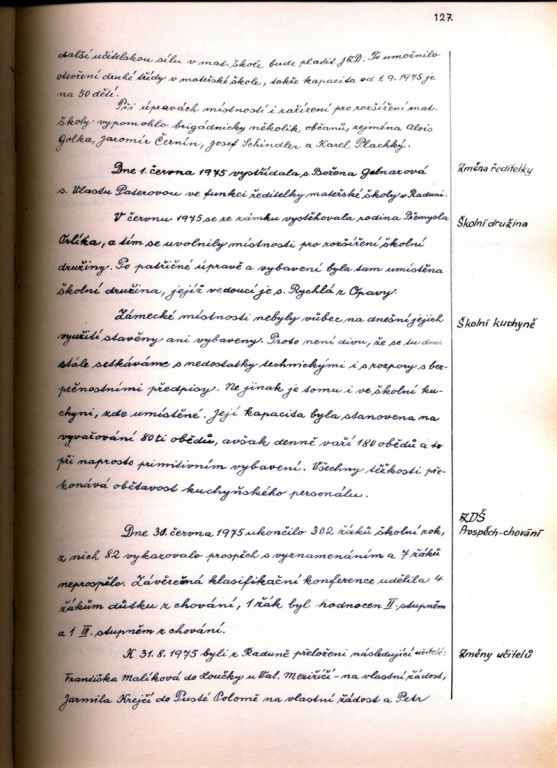 127.
další učitelskou sílu v mat. škole bude platit JZD. To umožnilo
otevření druhé třídy v mateřské škole, takže kapacita od 1.9.1975 je
na 50 dětí.
Při úpravách místností i zařízení pro rozšíření mat.
školy vypomohlo brigádnicky několik občanů, zejména Alois
Golka, Jaromír Černín, Josef Schindler a Karel Plachký.
Dne 1. června 1975 vystřídala s. Božena Gelnarová
Změna ředitelky
s. Vlastu Paterovou ve funkci ředitelky mateřské školy v Raduni.
V červnu 1975 se ze zámku vystěhovala rodina Přemysla
Školní družina
Orlíka, a tím se uvolnily místnosti pro rozšíření školní
družiny. Po patřičné úpravě a vybavení byla tam umístěna
školní družina, jejíž vedoucí je s. Rychlá z Opavy.
Zámecké místnosti nebyly vůbec na dnešní jejich
Školní kuchyně
využití stavěny ani vybaveny. Proto není divu, že se tu dnes
stále setkáváme s nedostatky technickými i s rozpory s bez-
pečnostními předpisy. Ne jinak je tomu i ve školní ku-
chyni, zde umístěné. Její kapacita byla stanovena na
vyvařování 80ti obědů, avšak denně vaří 180 obědů a to
při naprosto primitivním vybavení. Všechny těžkosti pře-
konává obětavost kuchyňského personálu.
ZDŠ
Dne 30. června 1975 ukončilo 302 žáků školní rok,
Prospěch-chování
z nich 82 vykazovalo prospěch s vyznamenáním a 7 žáků
neprospělo. Závěrečná klasifikační konference udělila 4
žákům důtku z chování, 1 žák byl hodnocen II. stupněm
a 1 III. stupněm z chování.
K 31.8.1975 byli z Raduně přeloženi následující učitelé:
Změny učitelů
Františka Malíková do Loučky u Val. Meziříčí - na vlastní žádost,
Jarmila Krejčí do Pusté Polomě na vlastní žádost a Petr